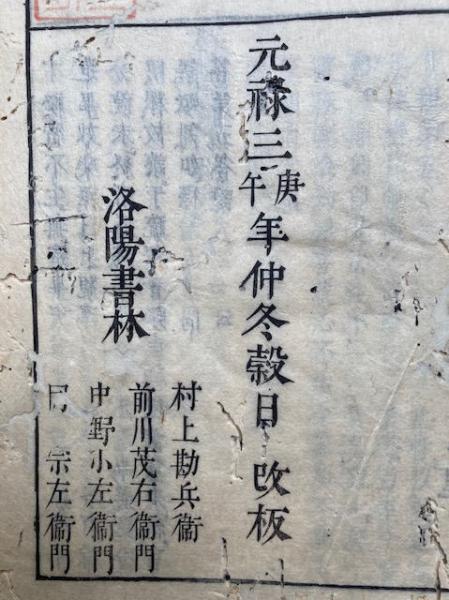 元禄三庚午年仲冬穀日 改板
洛陽書林
村上勘兵衞
前川茂右衞門
中野小左衞門
宗左衞門